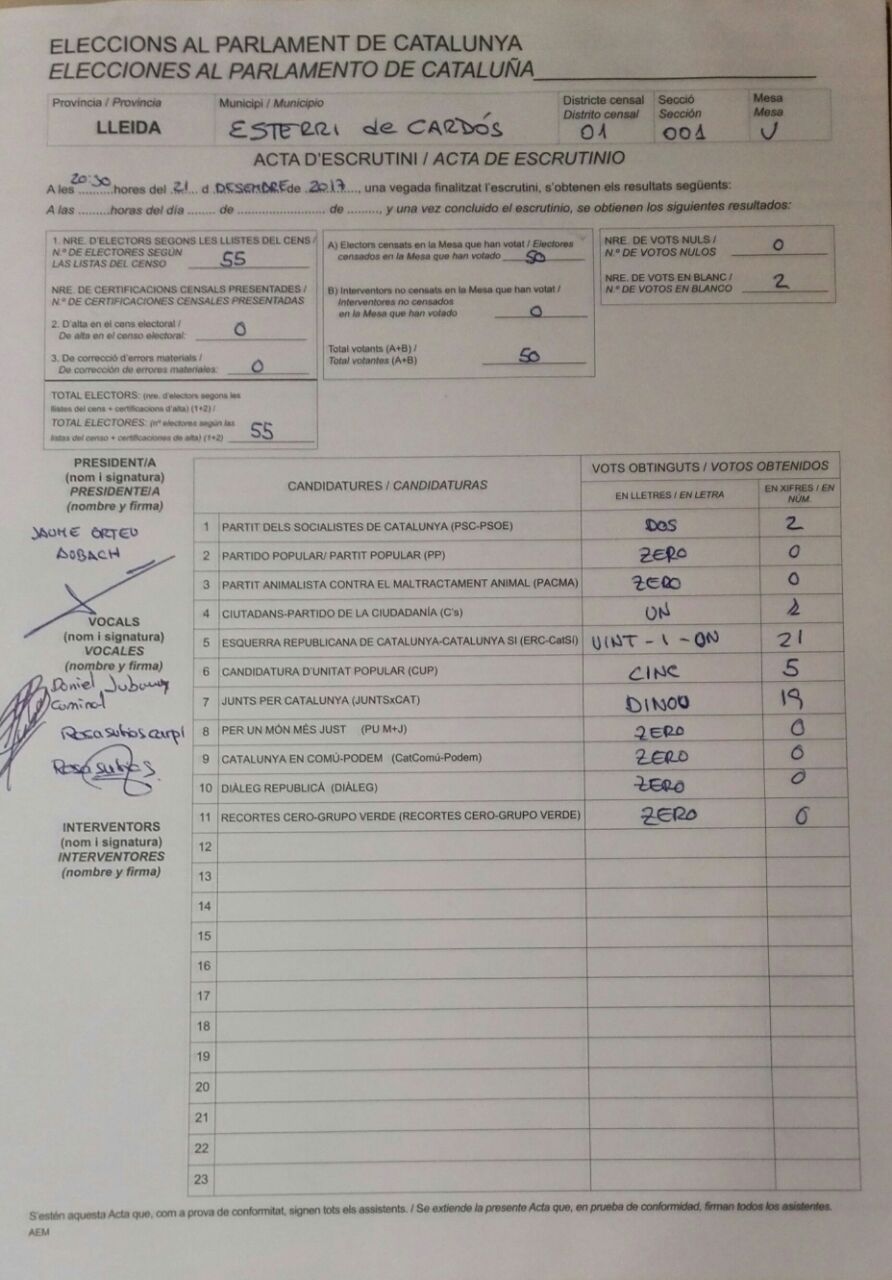 ELECCIONS AL PARLAMENT DE CATALUNYA
ELECCIONES AL PARLAMENTO DE CATALUÑA
Província / Provincia
LLEIDA
Municipi / Municipio
ESTERRI de CARDÓS
Districte censal
Distrito censal
01
Secció
Sección
001
Mesa
Mesa
U
ACTA D'ESCRUTINI / ACTA DE ESCRUTINIO
A les 20:30 hores del 21 d DESEMBRE de 2017, una vegada finalitzat l'escrutini, s'obtenen els resultats següents:
A las .........horas del día ........ de ......................... de ........., y una vez concluido el escrutinio, se obtienen los siguientes resultados:
1. NRE. D'ELECTORS SEGONS LES LLISTES DEL CENS /
N.º DE ELECTORES SEGÚN
LAS LISTAS DEL CENSO 55
NRE. DE CERTIFICACIONS CENSALS PRESENTADES /
N.º DE CERTIFICACIONES CENSALES PRESENTADAS
2. D'alta en el cens electoral /
De alta en el censo electoral: 0
3. De correcció d'errors materials /
De corrección de errores materiales: 0
TOTAL ELECTORS: (nre. d'electors segons les
llistes del cens + certificacions d'alta) (1+2) /
TOTAL ELECTORES: (nº electores según las
listas del censo + certificaciones de alta) (1+2) 55
A) Electors censats en la Mesa que han votat / Electores
censados en la Mesa que han votado 50
B) Interventors no censats en la Mesa que han votat /
Interventores no censados
en la Mesa que han votado 0
Total votants (A+B) /
Total votantes (A+B) 50
NRE. DE VOTS NULS /
N.º DE VOTOS NULOS 0
NRE. DE VOTS EN BLANC /
N.º DE VOTOS EN BLANCO 2
PRESIDENT/A
(nom i signatura)
PRESIDENTE/A
(nombre y firma)
JAUME ORTEU
VOCALS
(nom i signatura)
VOCALES
(nombre y firma)
Daniel
Rosa
Rosa
INTERVENTORS
(nom i signatura)
INTERVENTORES
(nombre y firma)
CANDIDATURES / CANDIDATURAS
VOTS OBTINGUTS / VOTOS OBTENIDOS
EN LLETRES / EN LETRA
EN XIFRES / EN NÚM.
1 PARTIT DELS SOCIALISTES DE CATALUNYA (PSC-PSOE) DOS 2
2 PARTIDO POPULAR/ PARTIT POPULAR (PP) ZERO 0
3 PARTIT ANIMALISTA CONTRA EL MALTRACTAMENT ANIMAL (PACMA) ZERO 0
4 CIUTADANS-PARTIDO DE LA CIUDADANÍA (C's) UN 1
5 ESQUERRA REPUBLICANA DE CATALUNYA-CATALUNYA SI (ERC-CatSí) VINT-I-UN 21
6 CANDIDATURA D'UNITAT POPULAR (CUP) CINC 5
7 JUNTS PER CATALUNYA (JUNTSxCAT) DINOU 19
8 PER UN MÓN MÉS JUST (PU M+J) ZERO 0
9 CATALUNYA EN COMÚ-PODEM (CatComú-Podem) ZERO 0
10 DIÀLEG REPUBLICÀ (DIÀLEG) ZERO 0
11 RECORTES CERO-GRUPO VERDE (RECORTES CERO-GRUPO VERDE) ZERO 0
12
13
14
15
16
17
18
19
20
21
22
23
S'estén aquesta Acta que, com a prova de conformitat, signen tots els assistents. / Se extiende la presente Acta que, en prueba de conformidad, firman todos los asistentes.
AEM